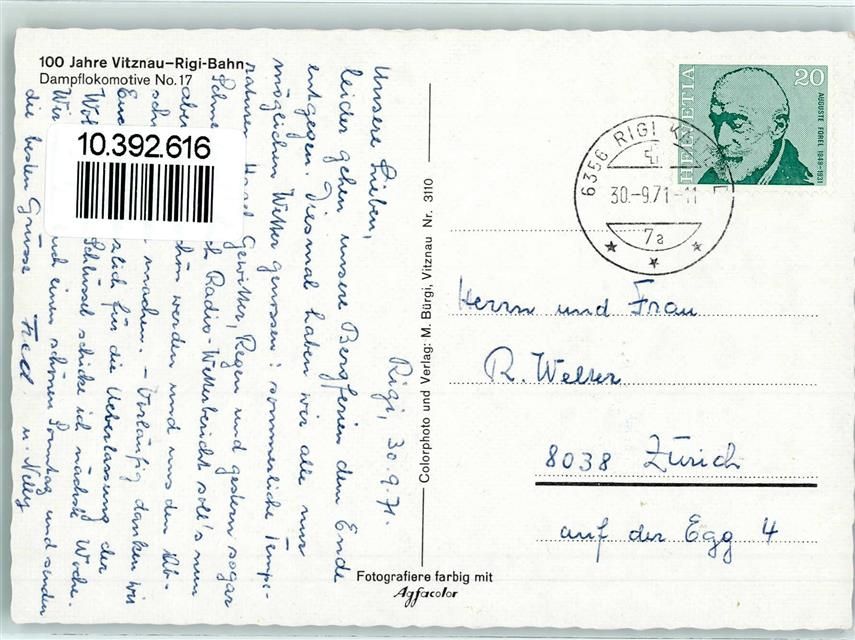 100 Jahre Vitznau–Rigi-Bahn
Dampflokomotive No. 17
10.392.616
Rigi, 30.9.71.
Unsere Lieben,
leider gehen unsere Bergferien dem Ende
entgegen. Diesmal haben wir alle nur
möglichen Wetter genossen: sommerliche Tempe-
raturen Hagel Gewitter, Regen und gestern sogar
Schnee Radio-Wetterbericht soll's nun
aber schön werden und uns den Ab-
machen. – Vorläufig danken wir
Euch für die Ueberlassung der
Schlüssel schicke ich nächste Woche.
Wir und einen schönen Sonntag und senden
die besten Grüsse Fred. u. Nelly
Colorphoto und Verlag: M. Bürgi, Vitznau Nr. 3110
Fotografiere farbig mit
Agfacolor
HELVETIA
20
AUGUSTE FOREL 1848-1931
6356 RIGI K L
30.-9.71-11
7a
Herrn und Frau
R. Welter
8038 Zürich
auf der Egg 4